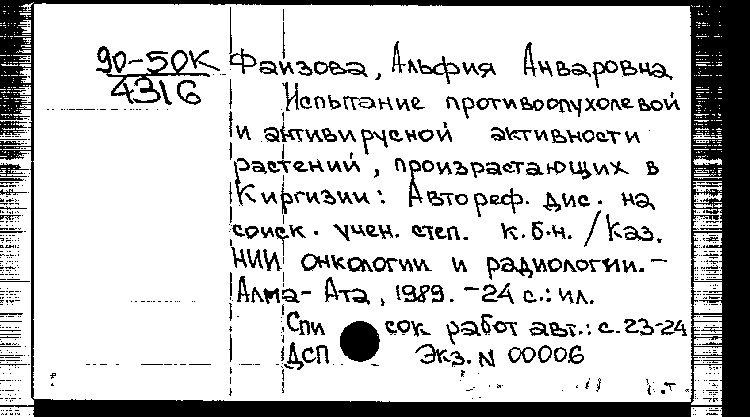 90-50К Фаизова, Альфия Анваровна
4316
Испытание противоопухолевой
и антивирусной активности
растений, произрастающих в
Киргизии: Автореф. дис. на
соиск. учен. степ. к.б.н. /Каз.
НИИ онкологии и радиологии.-
Алма-Ата, 1989. -24 с.: ил.
Список работ авт.: с.23-24
ДСП Экз. N 00006